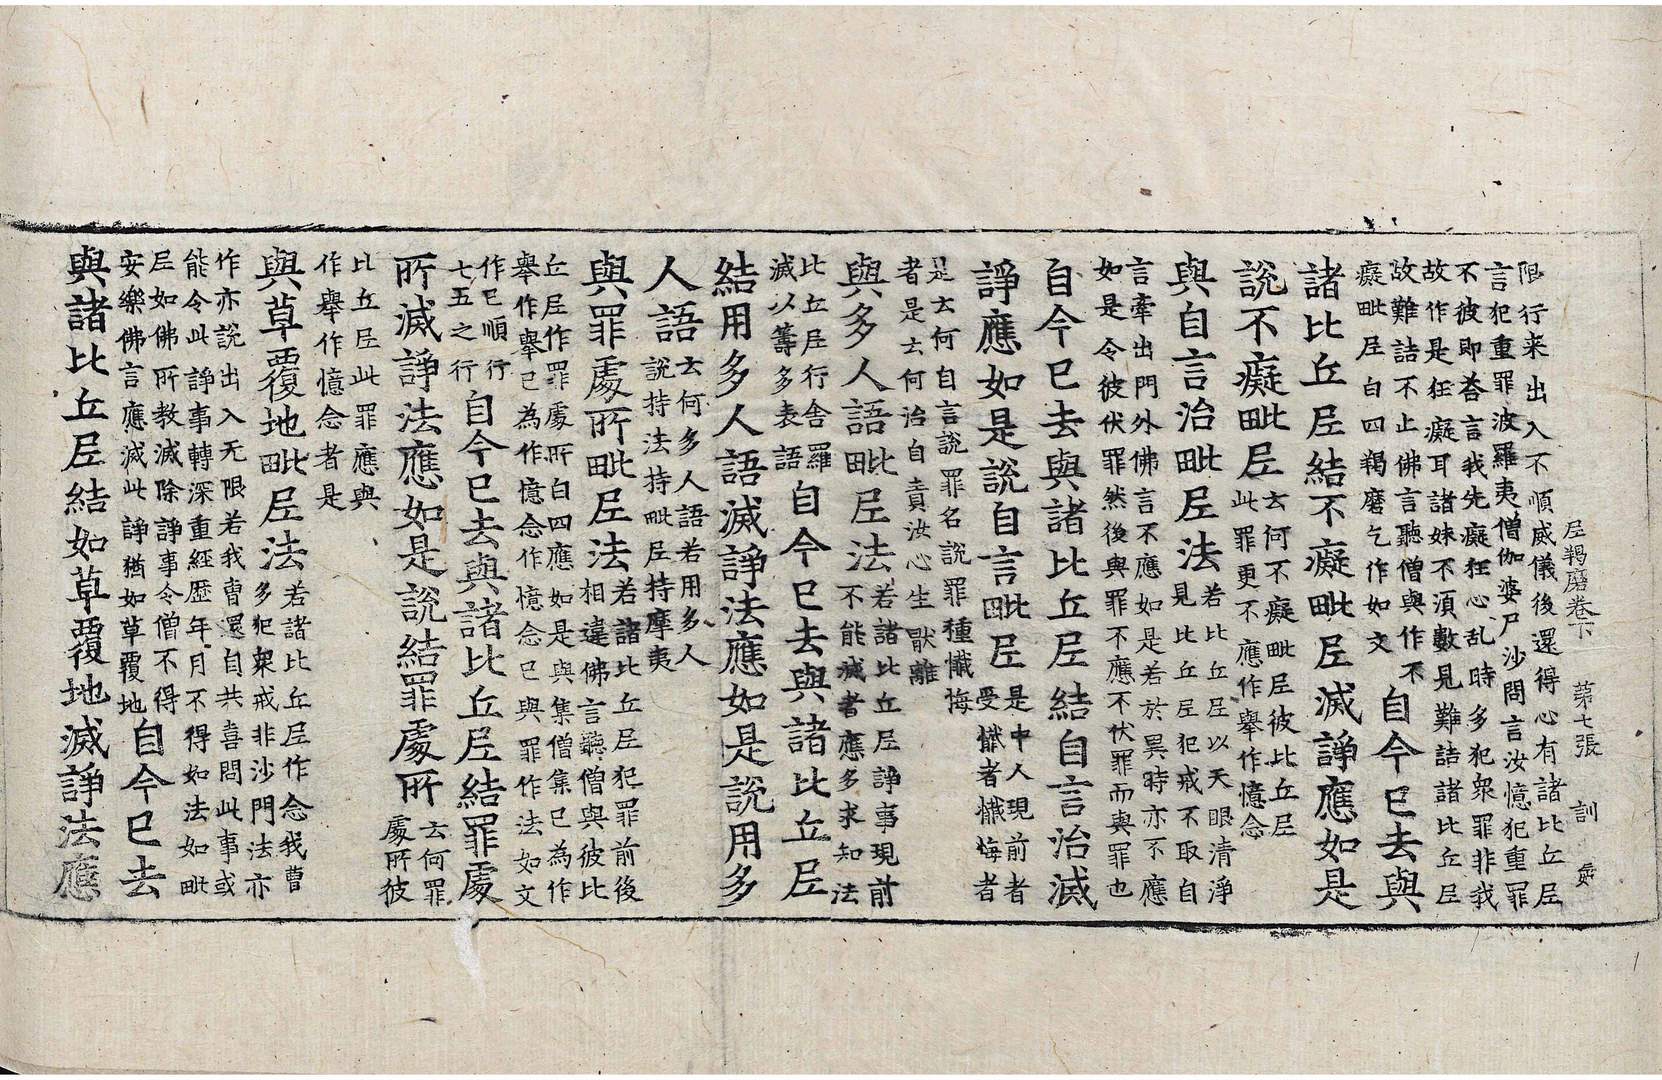 尼羯磨卷下 第七張 訓
限行来出入不順威儀後還得心有諸比丘尼
言犯重罪波羅夷僧伽婆尸沙問言汝憶犯重罪
不彼即荅言我先癡狂心乱時多犯衆罪非我
故作是狂癡耳諸妹不湏數見難詰諸比丘尼
故難詰不止佛言聽僧與作不
癡毗尼白四羯磨乞作如文
自今已去與
諸比丘尼結不癡毗尼滅諍應如是
說不癡毗尼
云何不癡毗尼彼比丘尼
此罪更不應作舉作憶念
與自言治毗尼法
若比丘尼以天眼清淨
見比丘尼犯戒不取自
言牽出門外佛言不應如是若於異時亦不應
如是令彼伏罪然後與罪不應不伏罪而與罪也
自今已去與諸比丘尼結自言治滅
諍應如是說自言毗尼
是中人現前者
受懺者懺悔者
是云何自言說罪名說罪種懺悔
者是云何治自責汝心生猒離
與多人語毗尼法
若諸比丘尼諍事現前
不能滅者應多求知法
比丘尼行舍羅
滅以籌多表語
自今已去與諸比丘尼
結用多人語滅諍法應如是說用多
人語
云何多人語若用多人
說持法持毗尼持摩夷
與罪處所毗尼法
若諸比丘尼犯罪前後
相違佛言聽僧與彼比
丘尼作罪處所白四應如是與集僧集已為作
舉作舉已為作憶念作憶念已與罪作法如文
作已順行
七五之行
自今已去與諸比丘尼結罪處
所滅諍法應如是說結罪處所
云何罪
處所彼
比丘尼此罪應與
作舉作憶念者是
與草覆地毗尼法
若諸比丘尼作念我曹
多犯衆戒非沙門法亦
作亦說出入无限若我曹還自共喜問此事或
能令此諍事轉深重經歷年月不得如法如毗
尼如佛所教滅除諍事令僧不得
安樂佛言應滅此諍猶如草覆地
自今已去
與諸比丘尼結如草覆地滅諍法應